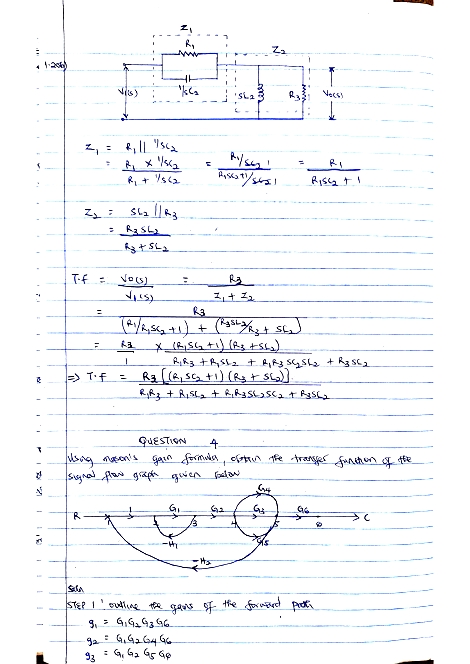 Z1
R1
Z2
1.20b)
Vi(s)
1/SC2
SL2
R3
Vo(s)
Z1 = R1 || 1/SC2
= R1 × 1/SC2 / R1 + 1/SC2 = R1/SC2 / R1SC2+1/SC2 = R1 / R1SC2 + 1
Z2 = SL2 || R3
= R3SL2 / R3 + SL2
T.f = Vo(s) / Vi(s) = R3 / Z1 + Z2
= R3 / (R1/R1SC2 + 1) + (R3SL2/R3 + SL2)
= R3 / 1 × (R1SC2 + 1)(R3 + SL2) / R1R3 + R1SL2 + R1R3SC2SL2 + R3SL2
=> T.f = R3 [(R1SC2 + 1)(R3 + SL2)] / R1R3 + R1SL2 + R1R3SL2SC2 + R3SL2
QUESTION 4
Using mason's gain formula, obtain the transfer function of the
signal flow graph given below
G4
R 1 G1 G2 G3 G6 C
-H1
G5
-H2
Soln
STEP 1: outline the gains of the forward path
g1 = G1G2G3G6
g2 = G1G2G4G6
g3 = G1G2G5G6